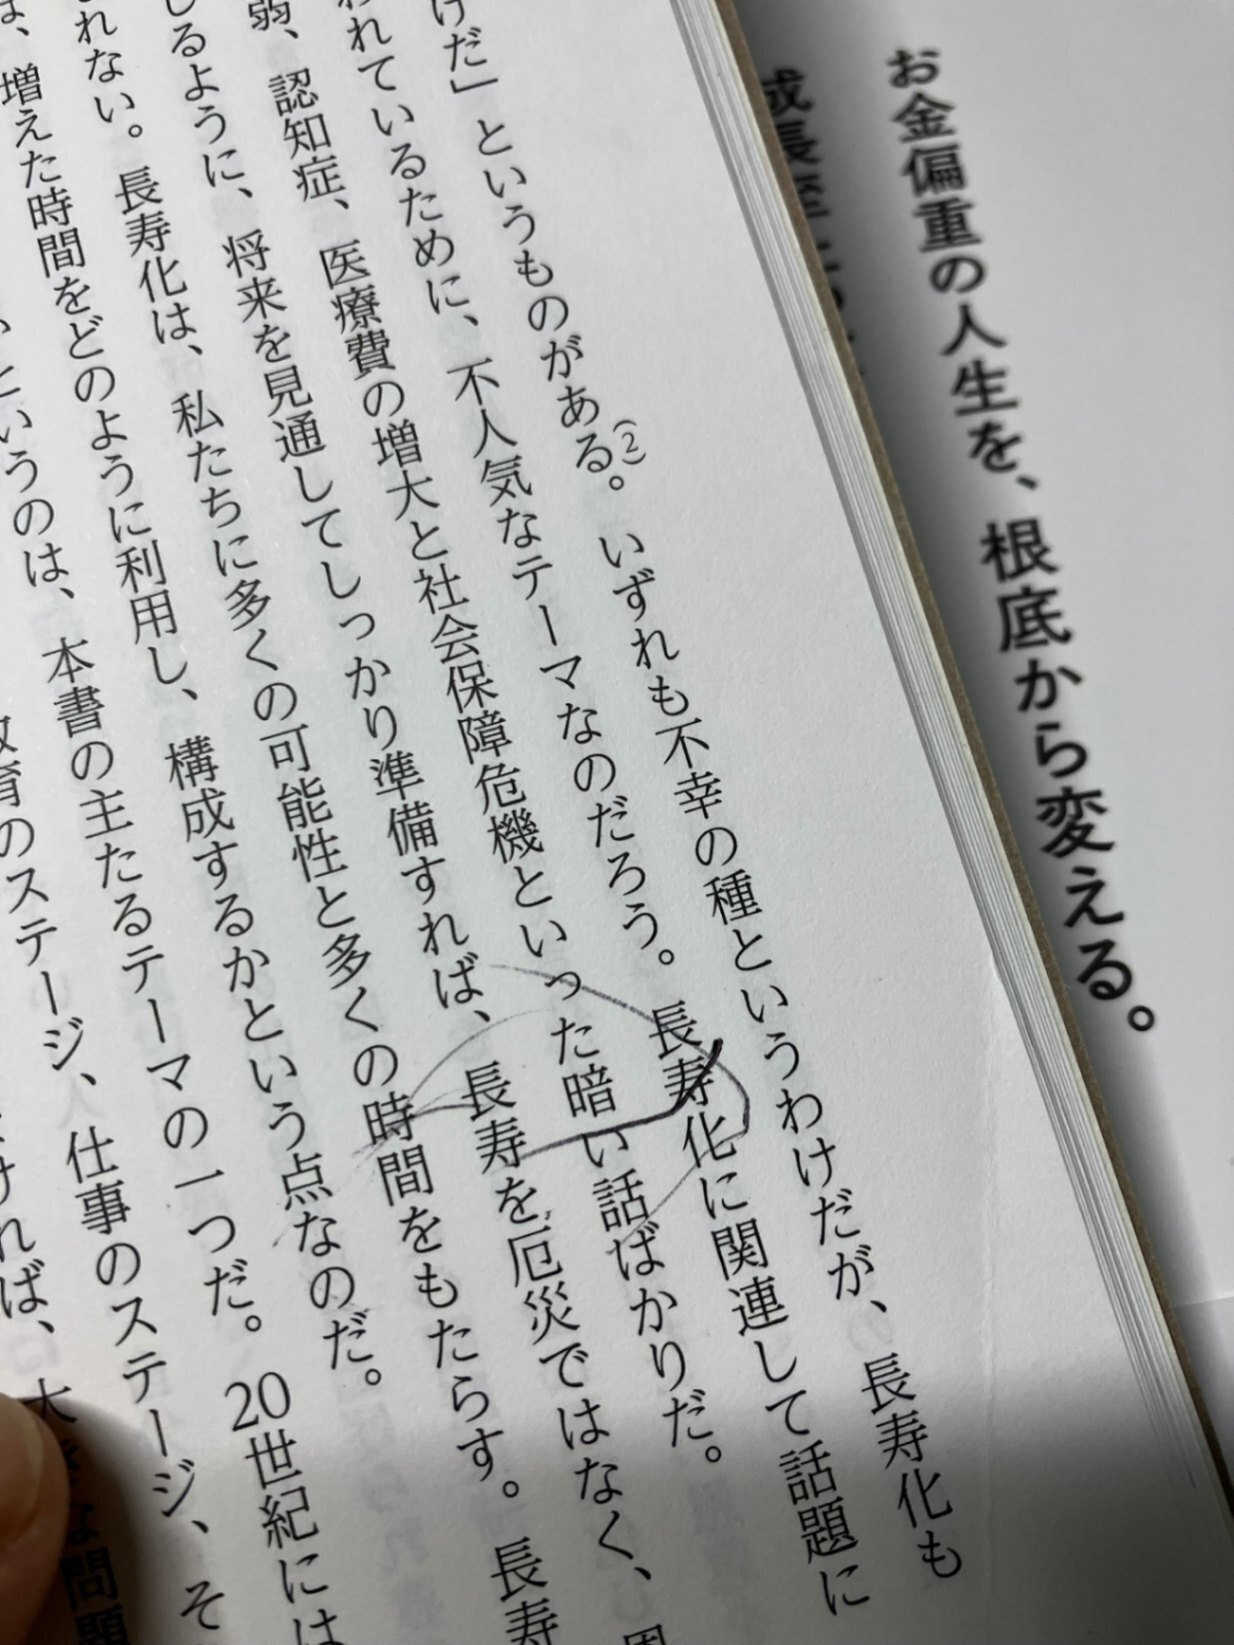 お金偏重の人生を、根底から変える。
けだ」というものがある。(2)いずれも不幸の種というわけだが、長寿化も
われているために、不人気なテーマなのだろう。長寿化に関連して話題に
弱、認知症、医療費の増大と社会保障危機といった暗い話ばかりだ。
じるように、将来を見通してしっかり準備すれば、長寿を厄災ではなく、
れない。長寿化は、私たちに多くの可能性と多くの時間をもたらす。長寿
は、増えた時間をどのように利用し、構成するかという点なのだ。
というのは、本書の主たるテーマの一つだ。20世紀には
教育のステージ、仕事のステージ、そ
ければ、大きな問題